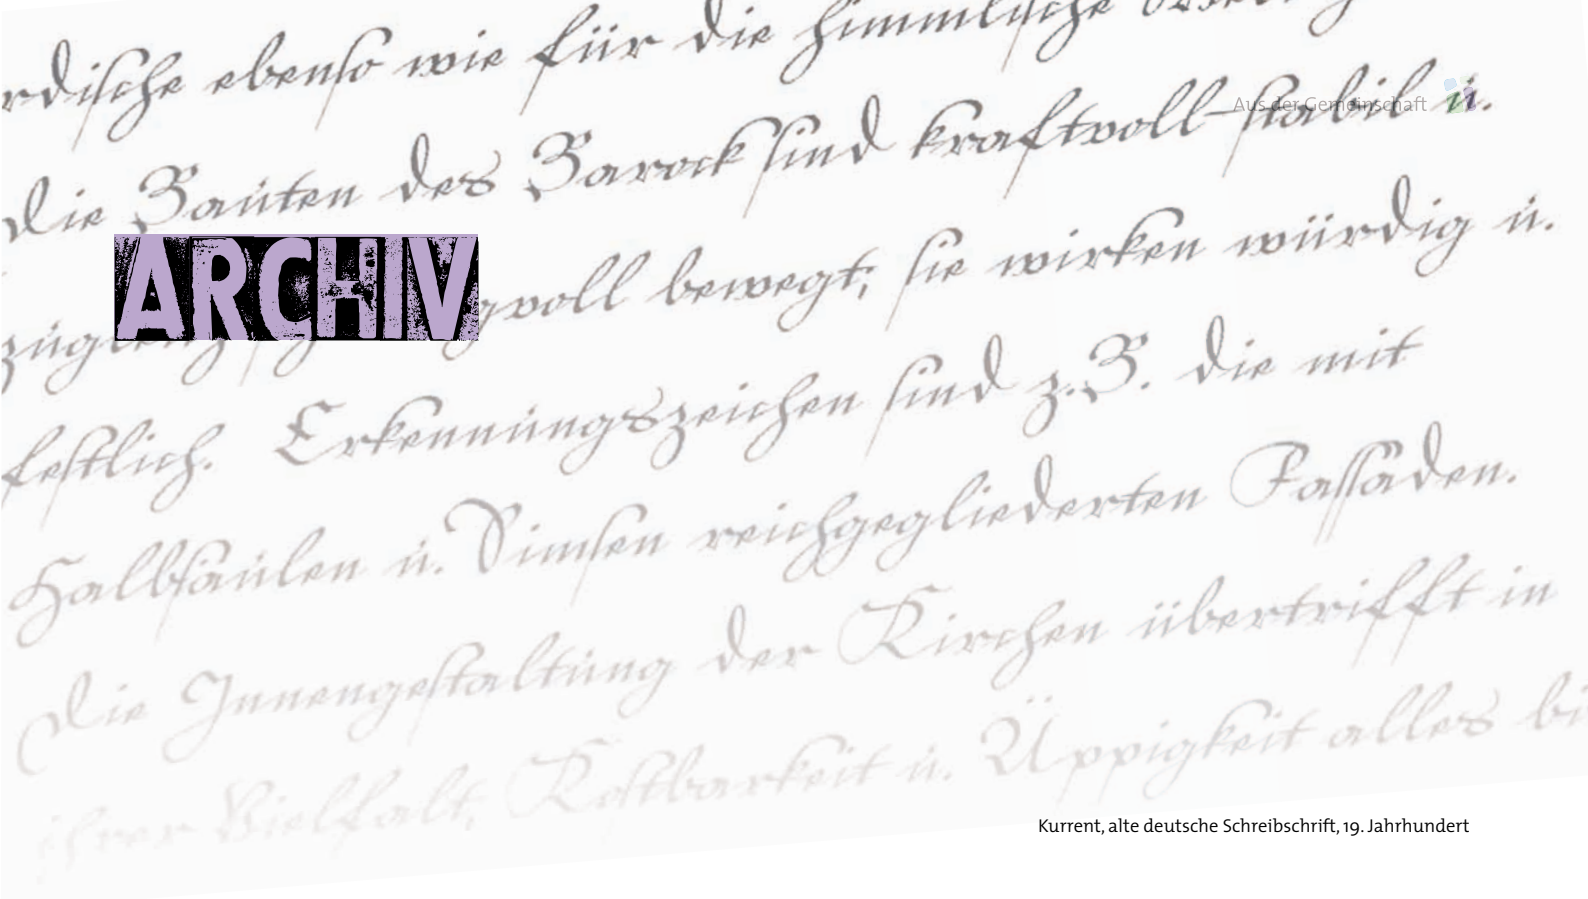 rdische ebenso wie für die himmlische
Aus der Gemeinschaft
Die Bauten des Barock sind kraftvoll-stabil u.
ARCHIV
voll bewegt; sie wirken würdig u.
festlich. Erkennungszeichen sind z.B. die mit
Halbsäulen u. Simsen reichgegliederten Fassaden.
Die Innengestaltung der Kirchen übertrifft in
ihrer Vielfalt, Kostbarkeit u. Üppigkeit alles bi
Kurrent, alte deutsche Schreibschrift, 19. Jahrhundert